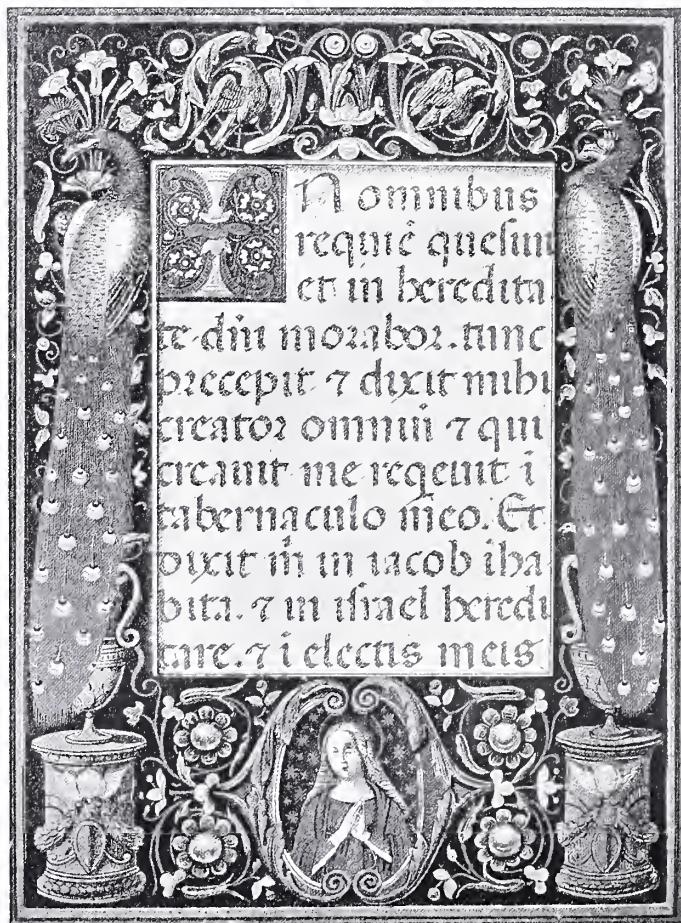 IN omnibus
requiē quesiui
et in heredita
te dn̄i morabor. tunc
precepit ⁊ dixit mihi
creator omniū ⁊ qui
creauit me requiuit ī
tabernaculo meo. Et
dixit m̄ in iacob iha
bita. ⁊ in israel heredi
tare. ⁊ ī electis meis